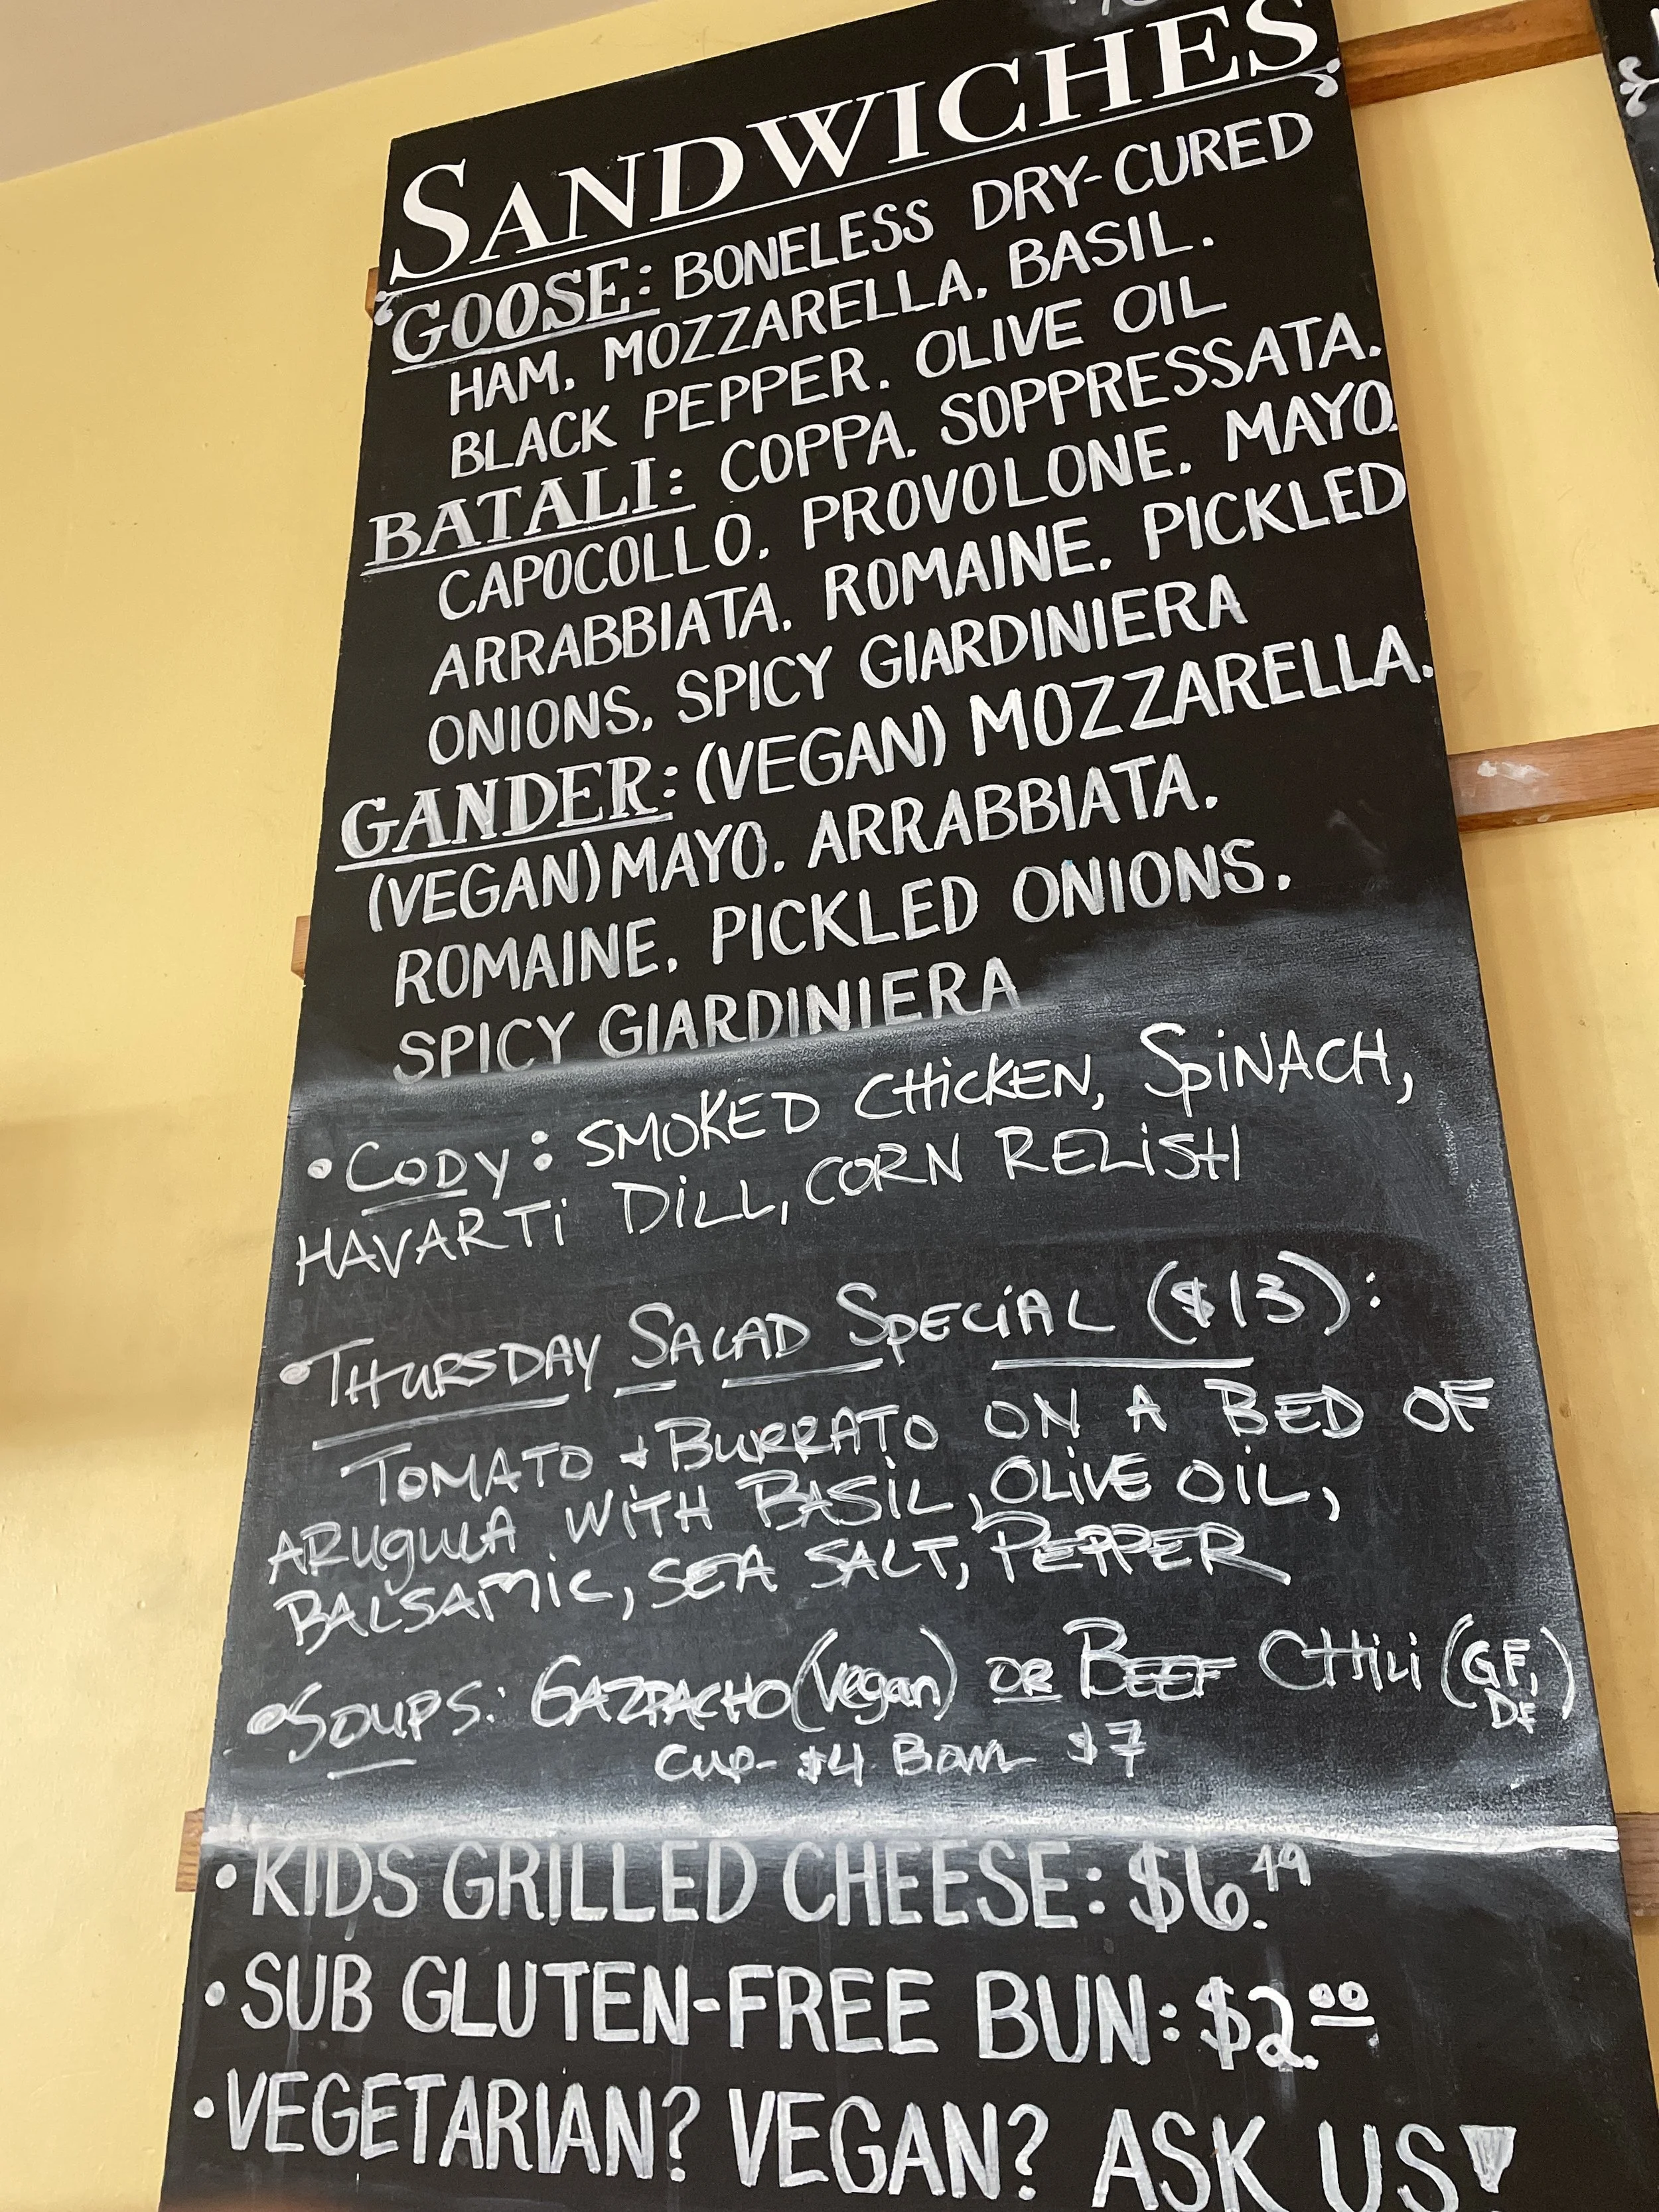 SANDWICHES
GOOSE: BONELESS DRY-CURED
HAM. MOZZARELLA. BASIL.
BLACK PEPPER. OLIVE OIL
BATALI: COPPA. SOPPRESSATA.
CAPOCOLLO. PROVOLONE. MAYO.
ARRABBIATA. ROMAINE. PICKLED
ONIONS. SPICY GIARDINIERA
GANDER: (VEGAN) MOZZARELLA.
(VEGAN) MAYO. ARRABBIATA.
ROMAINE. PICKLED ONIONS.
SPICY GIARDINIERA
• CODY: SMOKED CHICKEN, SPINACH,
HAVARTI DILL, CORN RELISH
• THURSDAY SALAD SPECIAL ($13):
TOMATO + BURRATO ON A BED OF
ARUGULA WITH BASIL, OLIVE OIL,
BALSAMIC, SEA SALT, PEPPER
• SOUPS: GAZPACHO (Vegan) OR BEEF CHILI (GF, DF)
CUP- $4 BOWL $7
• KIDS GRILLED CHEESE: $6.49
• SUB GLUTEN-FREE BUN: $2.00
• VEGETARIAN? VEGAN? ASK US